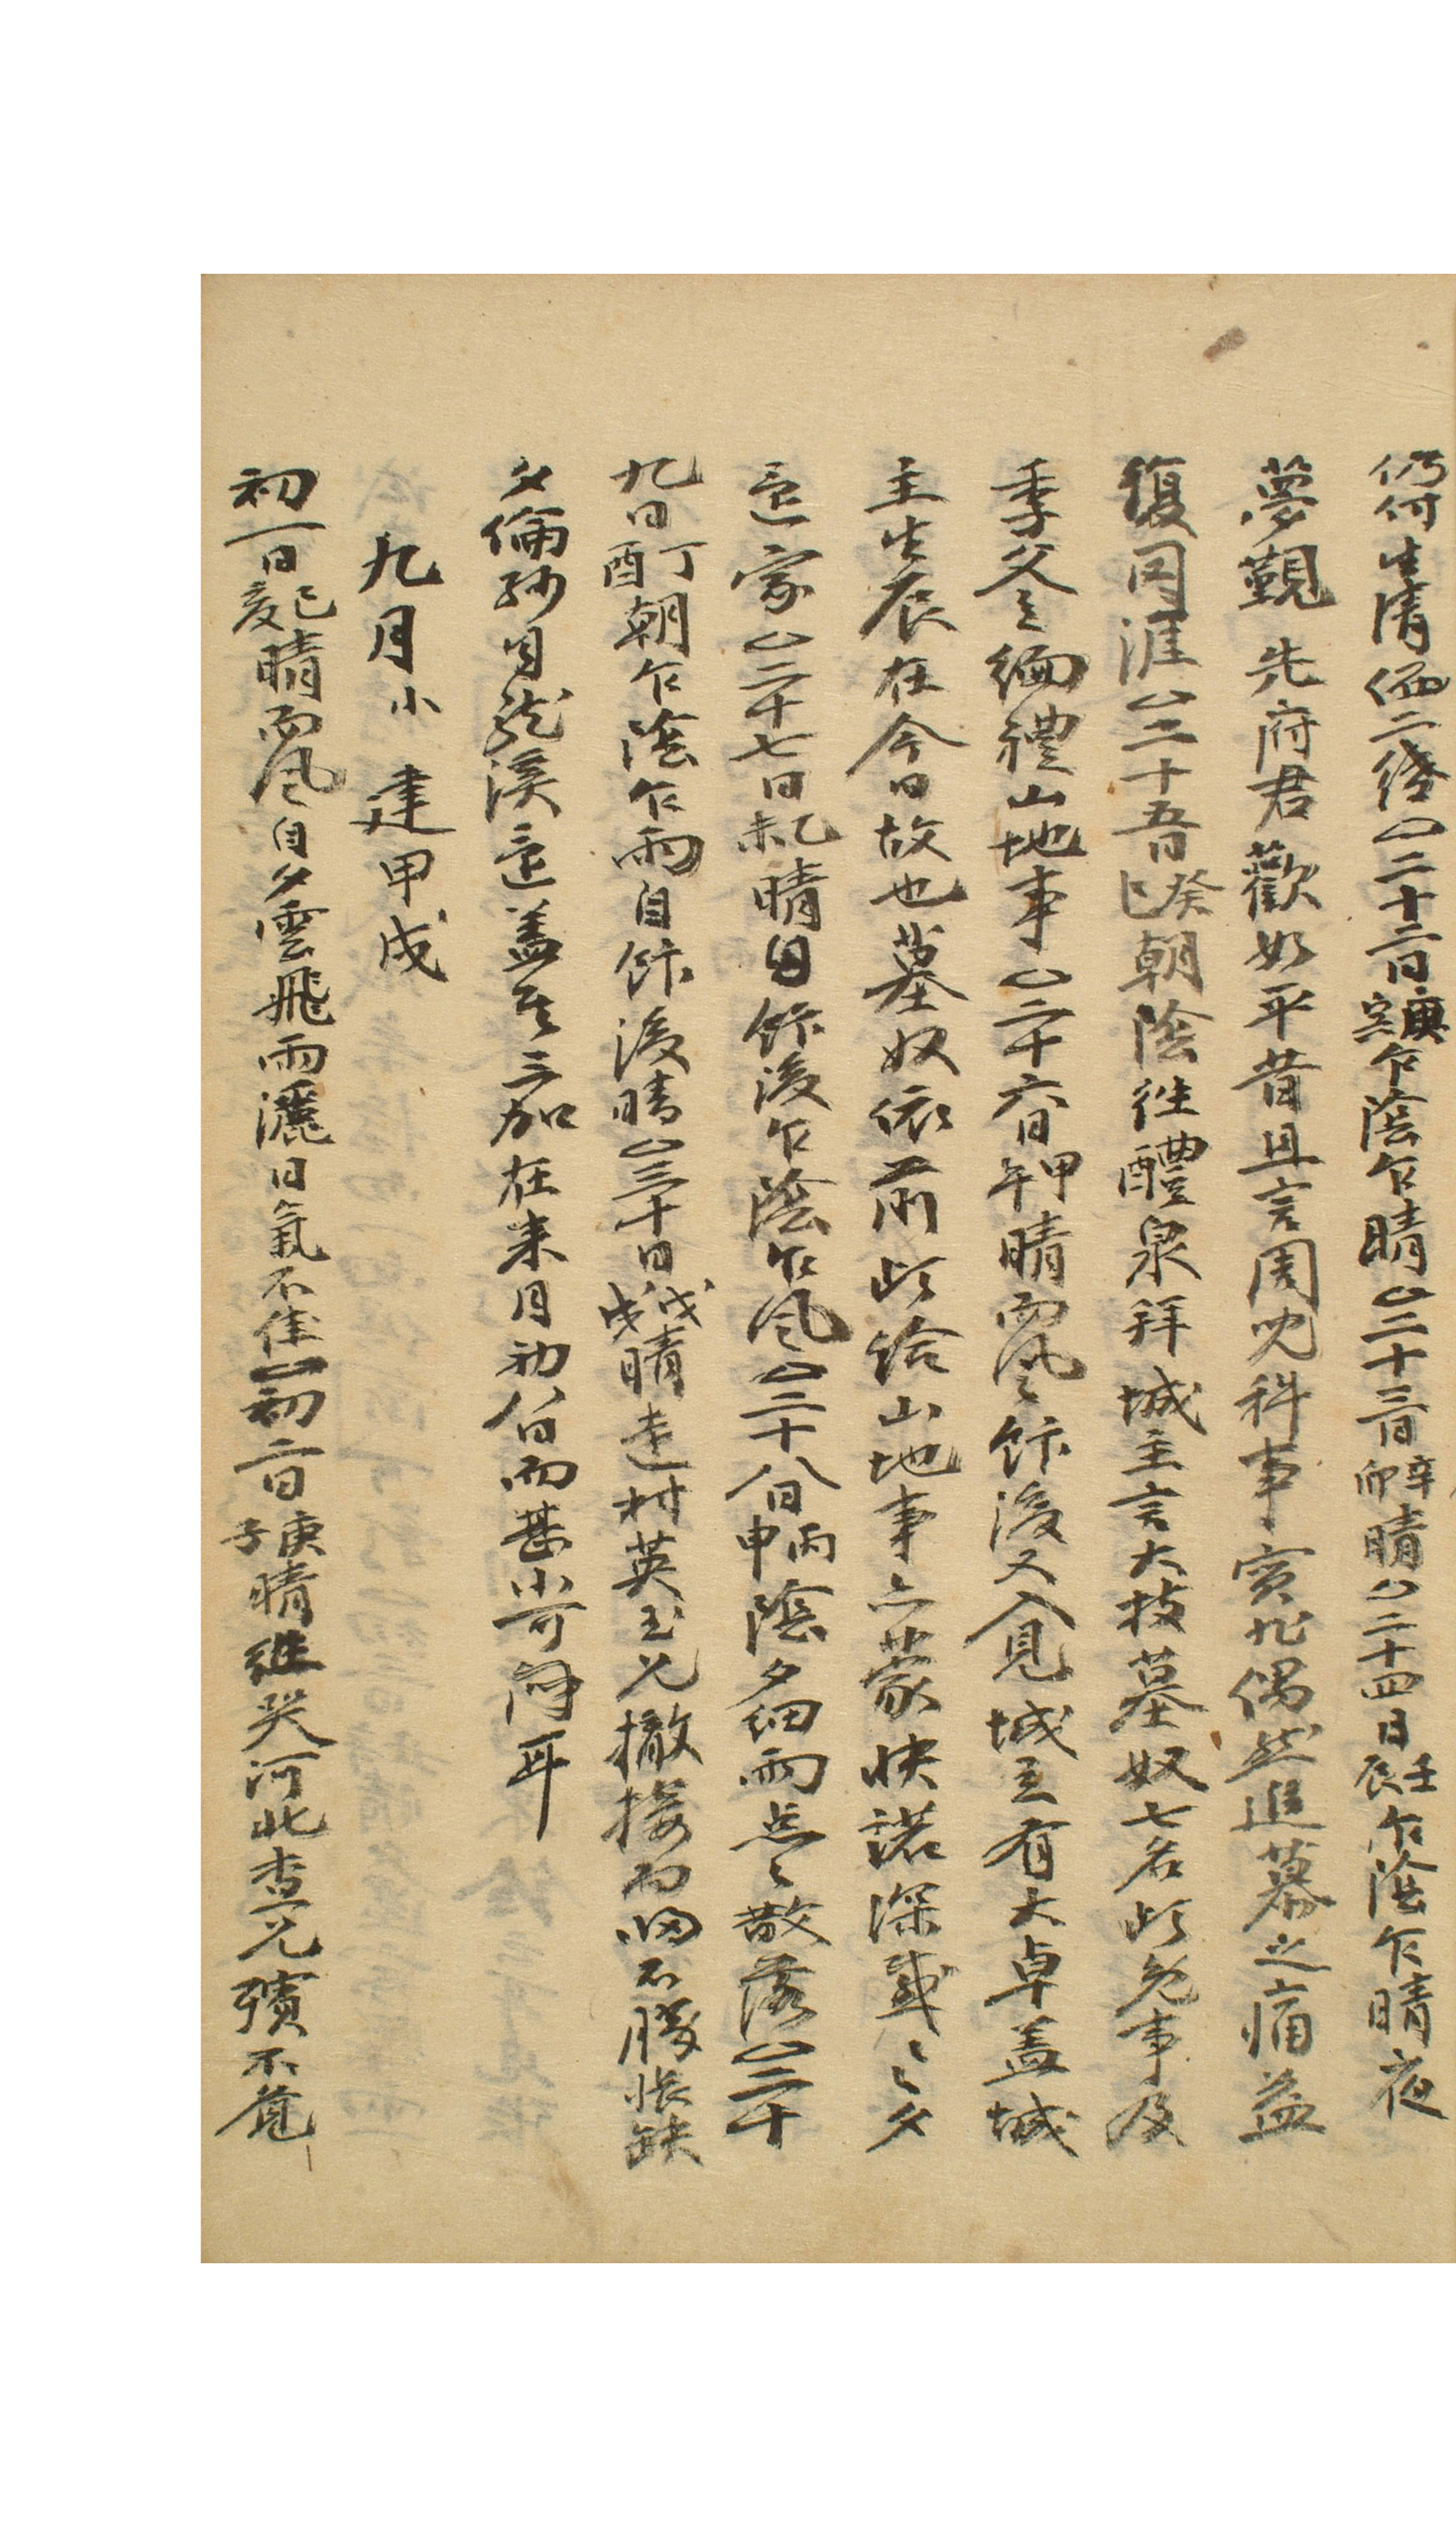 仍付生淸価二緡○二十二日庚寅乍陰乍晴○二十三日辛卯晴○二十四日壬辰乍陰乍晴夜
夢覲 先府君歡如平昔且言周 科事 寔非偶然追慕之痛益
復罔涯○二十五日癸巳朝陰往醴泉拜城主言大枝墓奴七名 免事及
季父主緬禮山地事○二十六日甲午晴而風飰後又入見城主有大卓盖城
主生辰在今日故也墓奴依前 給山地事亦蒙快諾深感〻〻夕
還家○二十七日乙未晴自飰後乍陰乍風○二十八日丙申陰夕細雨点〻散落○二十
九日丁酉朝乍陰乍雨自飰後晴○三十日戊戌晴 村英玉兄撤 而歸不勝悵缺
夕倫 自龍溪還盖其三加在來月初八日而甚 耳
九月小 建甲戌
初一日己亥晴而風自夕雲飛雨灑日氣不佳○初二日庚子晴 哭河北査兄殯不覺